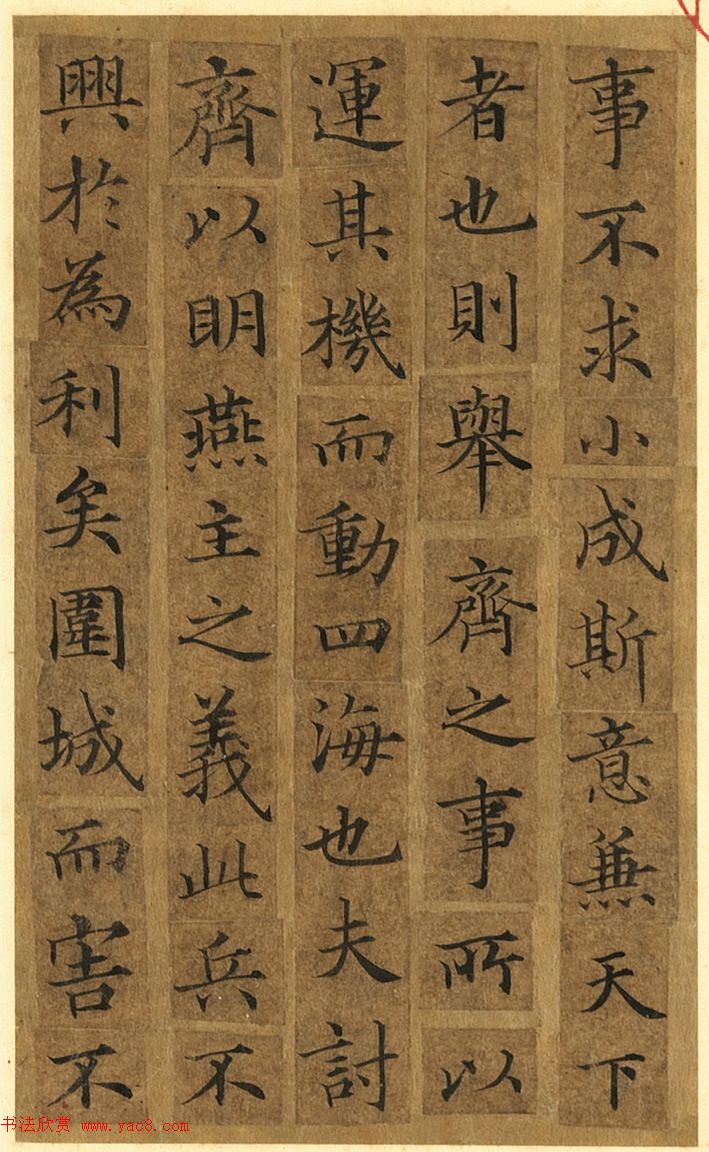 事不求小成斯意兼天下
者也則舉齊之事所以
運其機而動四海也夫討
齊以明燕主之義此兵不
興於為利矣圍城而害不
书法欣赏 www.yac8.com